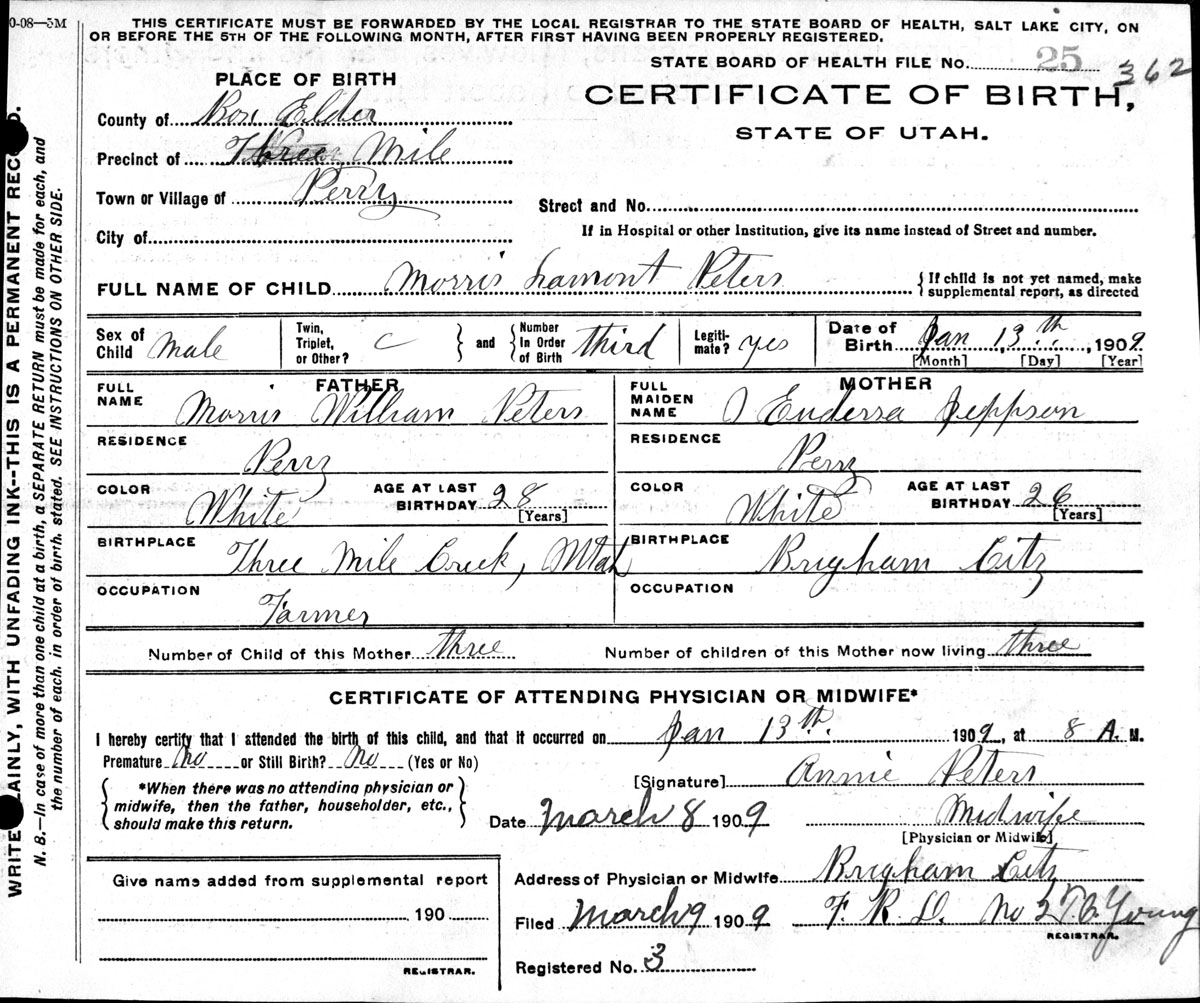 0-08—5M
THIS CERTIFICATE MUST BE FORWARDED BY THE LOCAL REGISTRAR TO THE STATE BOARD OF HEALTH, SALT LAKE CITY, ON
OR BEFORE THE 5TH OF THE FOLLOWING MONTH, AFTER FIRST HAVING BEEN PROPERLY REGISTERED.
STATE BOARD OF HEALTH FILE No. 25 362
PLACE OF BIRTH
CERTIFICATE OF BIRTH,
STATE OF UTAH.
County of Box Elder
Precinct of Three Mile
Town or Village of Perry
Street and No.
City of
If in Hospital or other Institution, give its name instead of Street and number.
FULL NAME OF CHILD Morris Lamont Peters { If child is not yet named, make
supplemental report, as directed
Sex of Child Male
Twin, Triplet, or Other? C } and { Number In Order of Birth third
Legiti-mate? yes
Date of Birth Jan 13th, 1909
[Month] [Day] [Year]
FATHER
FULL NAME Morris William Peters
RESIDENCE Perry
COLOR White AGE AT LAST BIRTHDAY 28 [Years]
BIRTHPLACE Three Mile Creek, Utah
OCCUPATION Farmer
MOTHER
FULL MAIDEN NAME J Enderra Jeppson
RESIDENCE Perry
COLOR White AGE AT LAST BIRTHDAY 26 [Years]
BIRTHPLACE Brigham City
OCCUPATION
Number of Child of this Mother three Number of children of this Mother now living three
CERTIFICATE OF ATTENDING PHYSICIAN OR MIDWIFE*
I hereby certify that I attended the birth of this child, and that it occurred on Jan 13th. 1909, at 8 A. M.
Premature No or Still Birth? No (Yes or No)
[Signature] Annie Peters
{ *When there was no attending physician or
midwife, then the father, householder, etc.,
should make this return. }
Date March 8 1909 Midwife
[Physician or Midwife]
Give name added from supplemental report
190
REGISTRAR.
Address of Physician or Midwife Brigham City
Filed March 9 1909 F. R. D. No 2 T. C. Young
REGISTRAR.
Registered No. 3
WRITE PLAINLY, WITH UNFADING INK--THIS IS A PERMANENT RECORD.
N. B.—In case of more than one child at a birth, a SEPARATE RETURN must be made for each, and
the number of each, in order of birth, stated. SEE INSTRUCTIONS ON OTHER SIDE.